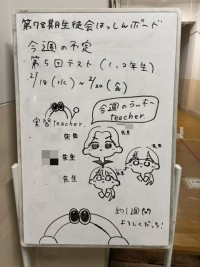 第78期生徒会はっしんボード
今週の予定
第5回テスト(1,2年生)
2/18(火)~2/20(金)
今週のラッキー
teacher
実習teacher
先生
先生
先生
先生
先生
約1週間
よろしくだっち!